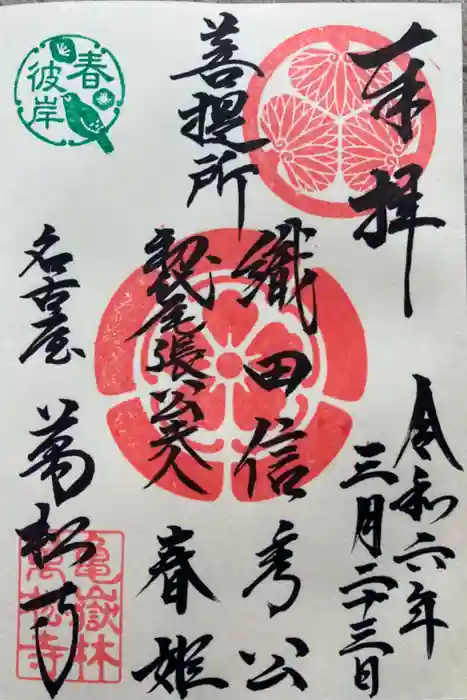 奉拝
令和六年
三月二十三日
菩提所
織田信秀公
初代尾張公夫人
春姫
名古屋
萬松寺
春
彼岸
亀嶽林
萬松寺